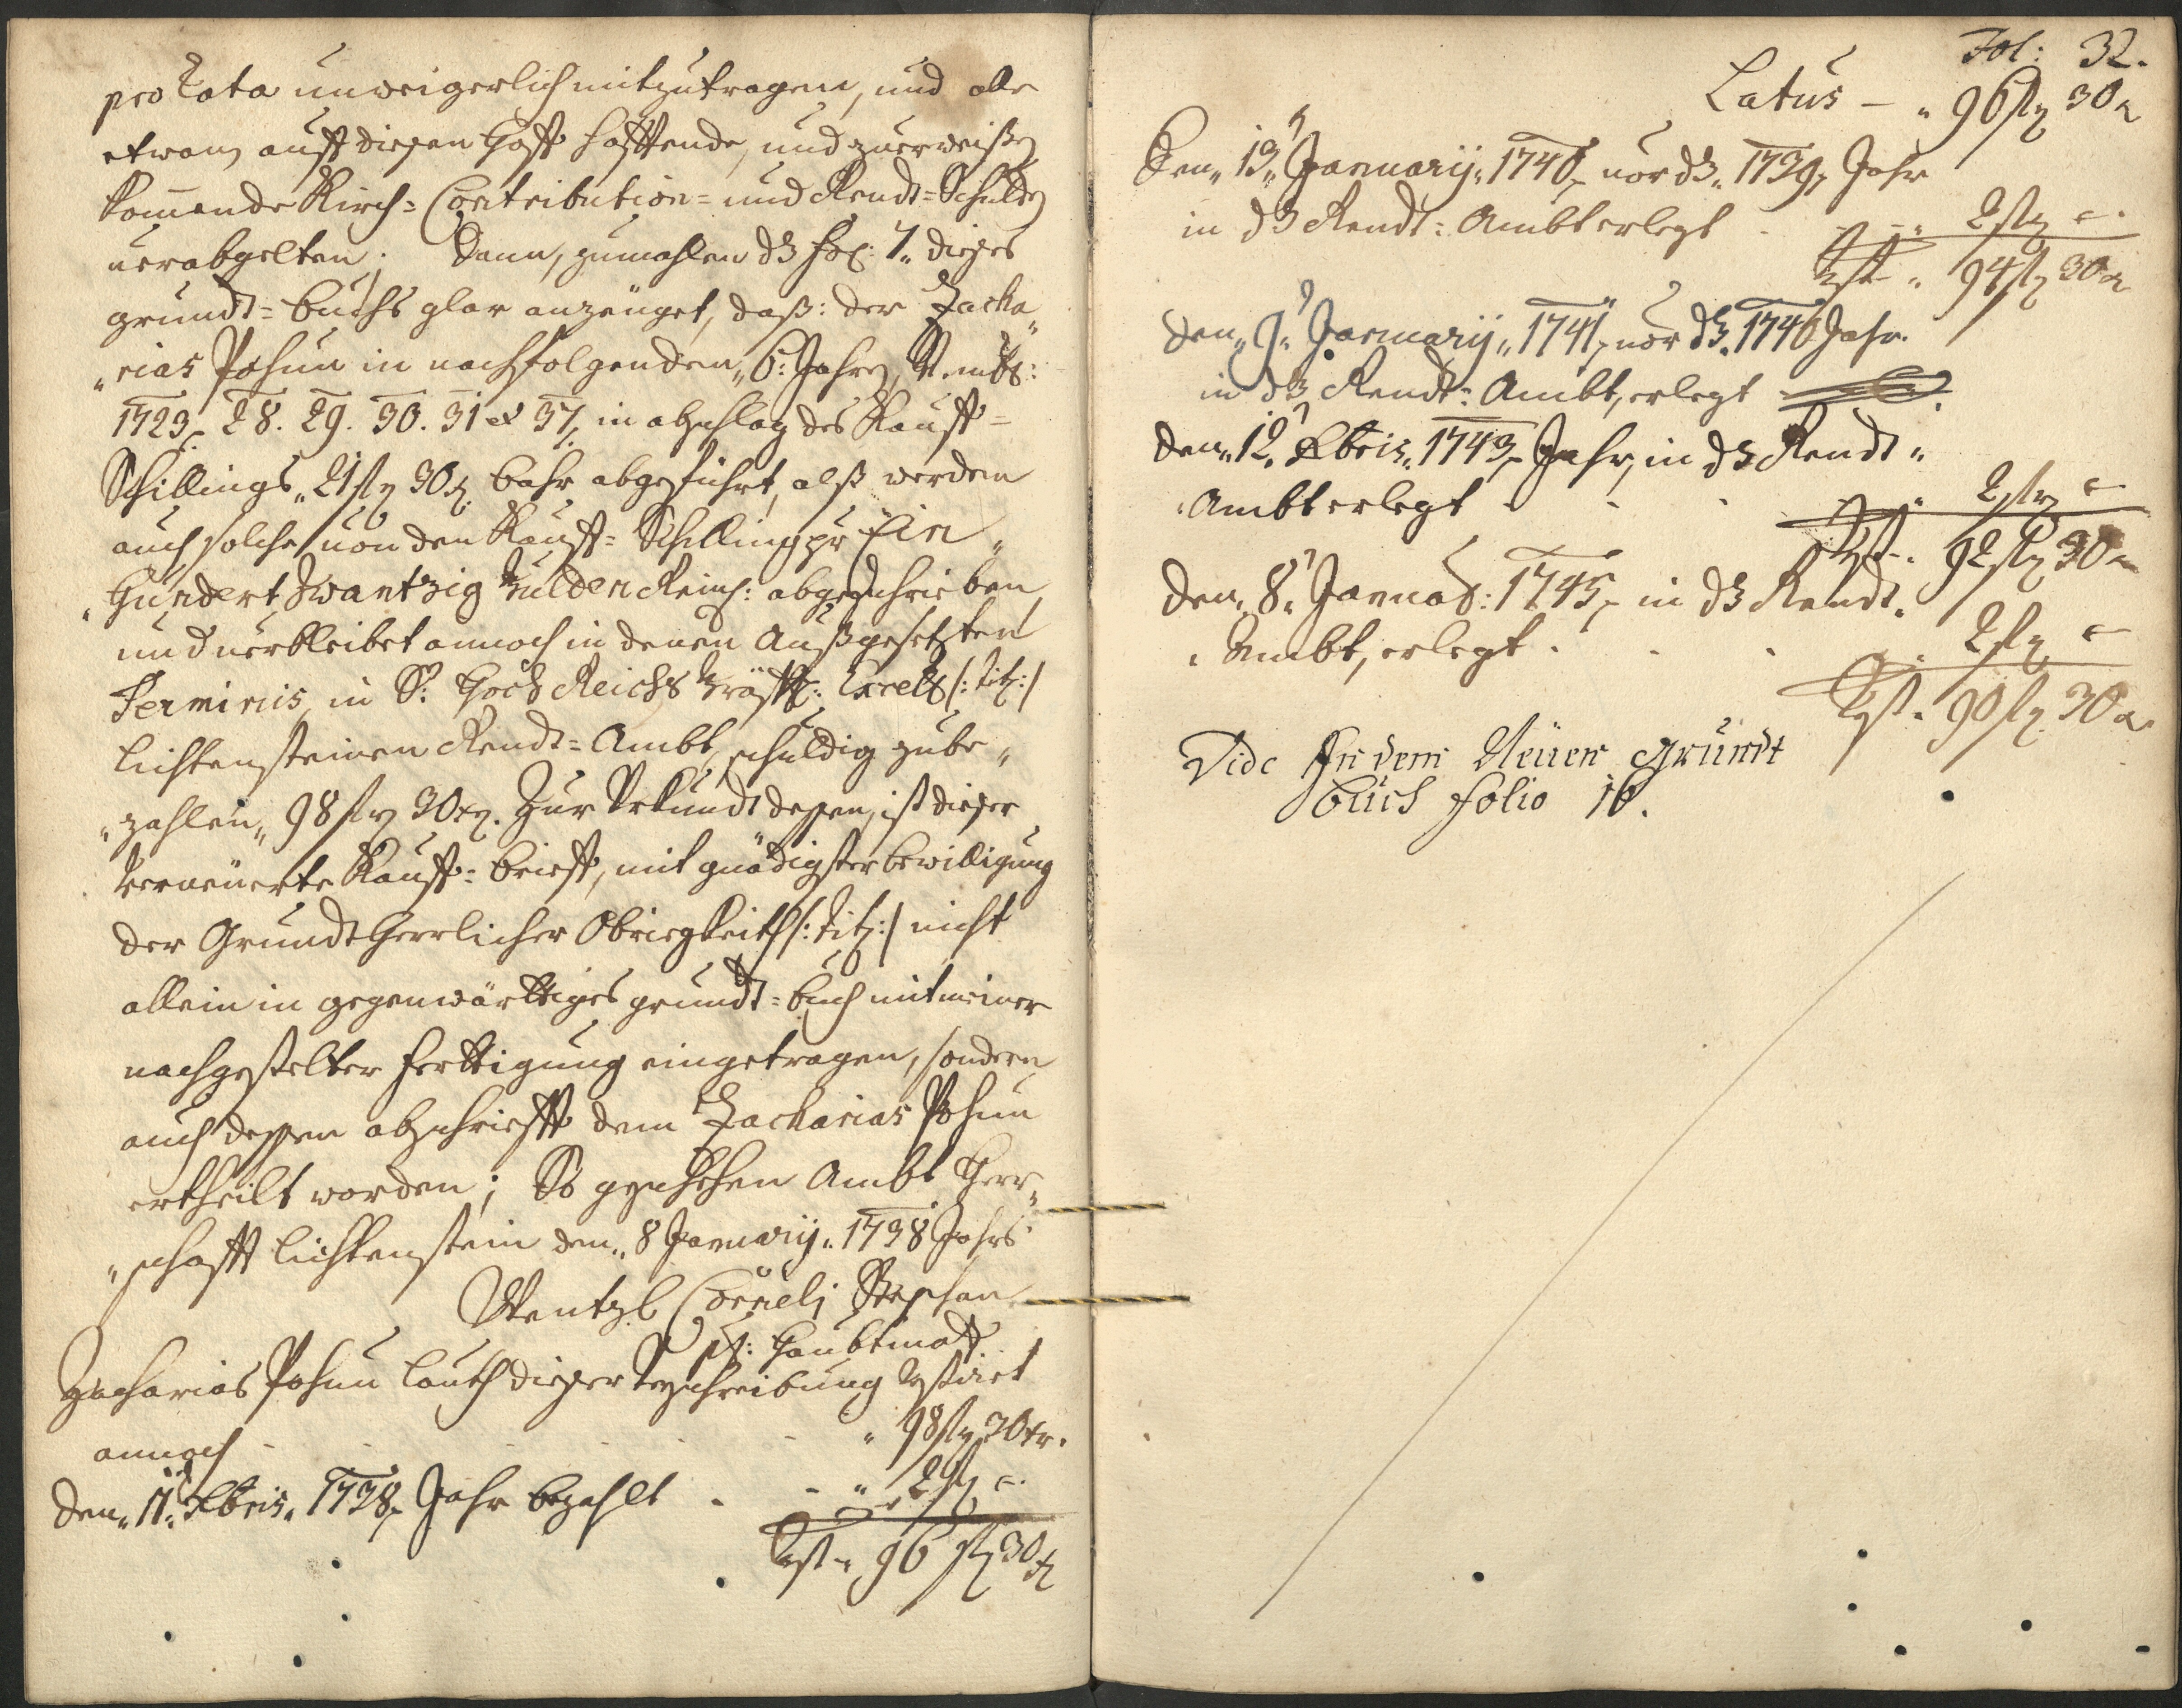 pro Rata unweigerlich mitzutragen, und alle
etwan auff diesen Hoff hafftende, und zuerweißen
kommende Kirch- Contribution- und Rendt-Schulden
verabgelten; dann, zumahlen dß fol: 7. dießes
grundt-buchs glar anzeuget, daß: der Zacha„
„rias Pohun in nachfolgenden„ 6: Jahren, Nembl:
1723, 28. 29. 30. 31 et 37, in abschlag des Kauff-
Schillings„ 21 fl 30 x bahr abgeführt, alß werden
auch solche von den Kauff-Schilling pr Ein„
„Hundert Zwantzig Gulden Reinl: abgeschrieben,
und verbleibet annoch in denen Außgesetzten
Terminis, in Sr: Hoch Reichs Gräffl: Excell /: titl: /
Lichtensteinen Rendt-Ambt, schuldig zube„
„zahlen„ 98 fl 30 xr. Zur Urkundt dessen, ist dießer
Verneuerte Kauff-brieff, mit gnädigster bewilligung
der Grundt Herrlicher Obriegkeith /: titl: / nicht
allein in gegenwärttiges grundt-buch mit meiner
nachgestelter Ferttigung eingetragen, sondern
auch dessen abschriefft dem Zacharias Pohun
ertheilt worden; So geschehen Ambt Herr„
„schafft Lichtenstein den„ 8 January„ 1738 Jahrs
Wentzl Cornelj Stephan
Haubtman
Zacharias Pohun lauth dießer beschreibung Restiret
annoch - - - „ 98 fl 30 xr.
den„ 11. Xbris„ 1738, Jahr bezahlt - - „ 2 fl -
Rest„ 96 fl 30 x
Fol: 32.
Latus - „ 96 fl 30 x
Den„ 13„ January„ 1740, vor dß„ 1739, Jahr
in dß Rendt-Ambt erlegt - - „ 2 fl -
Rest„ 94 fl 30 x
den„ 9„ January„ 1741, vor dß„ 1740 Jahr
in dß Rendt-Ambt, erlegt
den„ 12. Xbris„ 1743, Jahr, in dß Rendt„
„Ambt erlegt - - - „ 2 fl -
Rest„ 92 fl 30 x
den„ 8„ Januar: 1745, in dß Rendt„
„Ambt, erlegt - - - „ 2 fl -
Rest„ 90 fl 30 x
Vide In dem Neüen grundt
Buch folio 16.